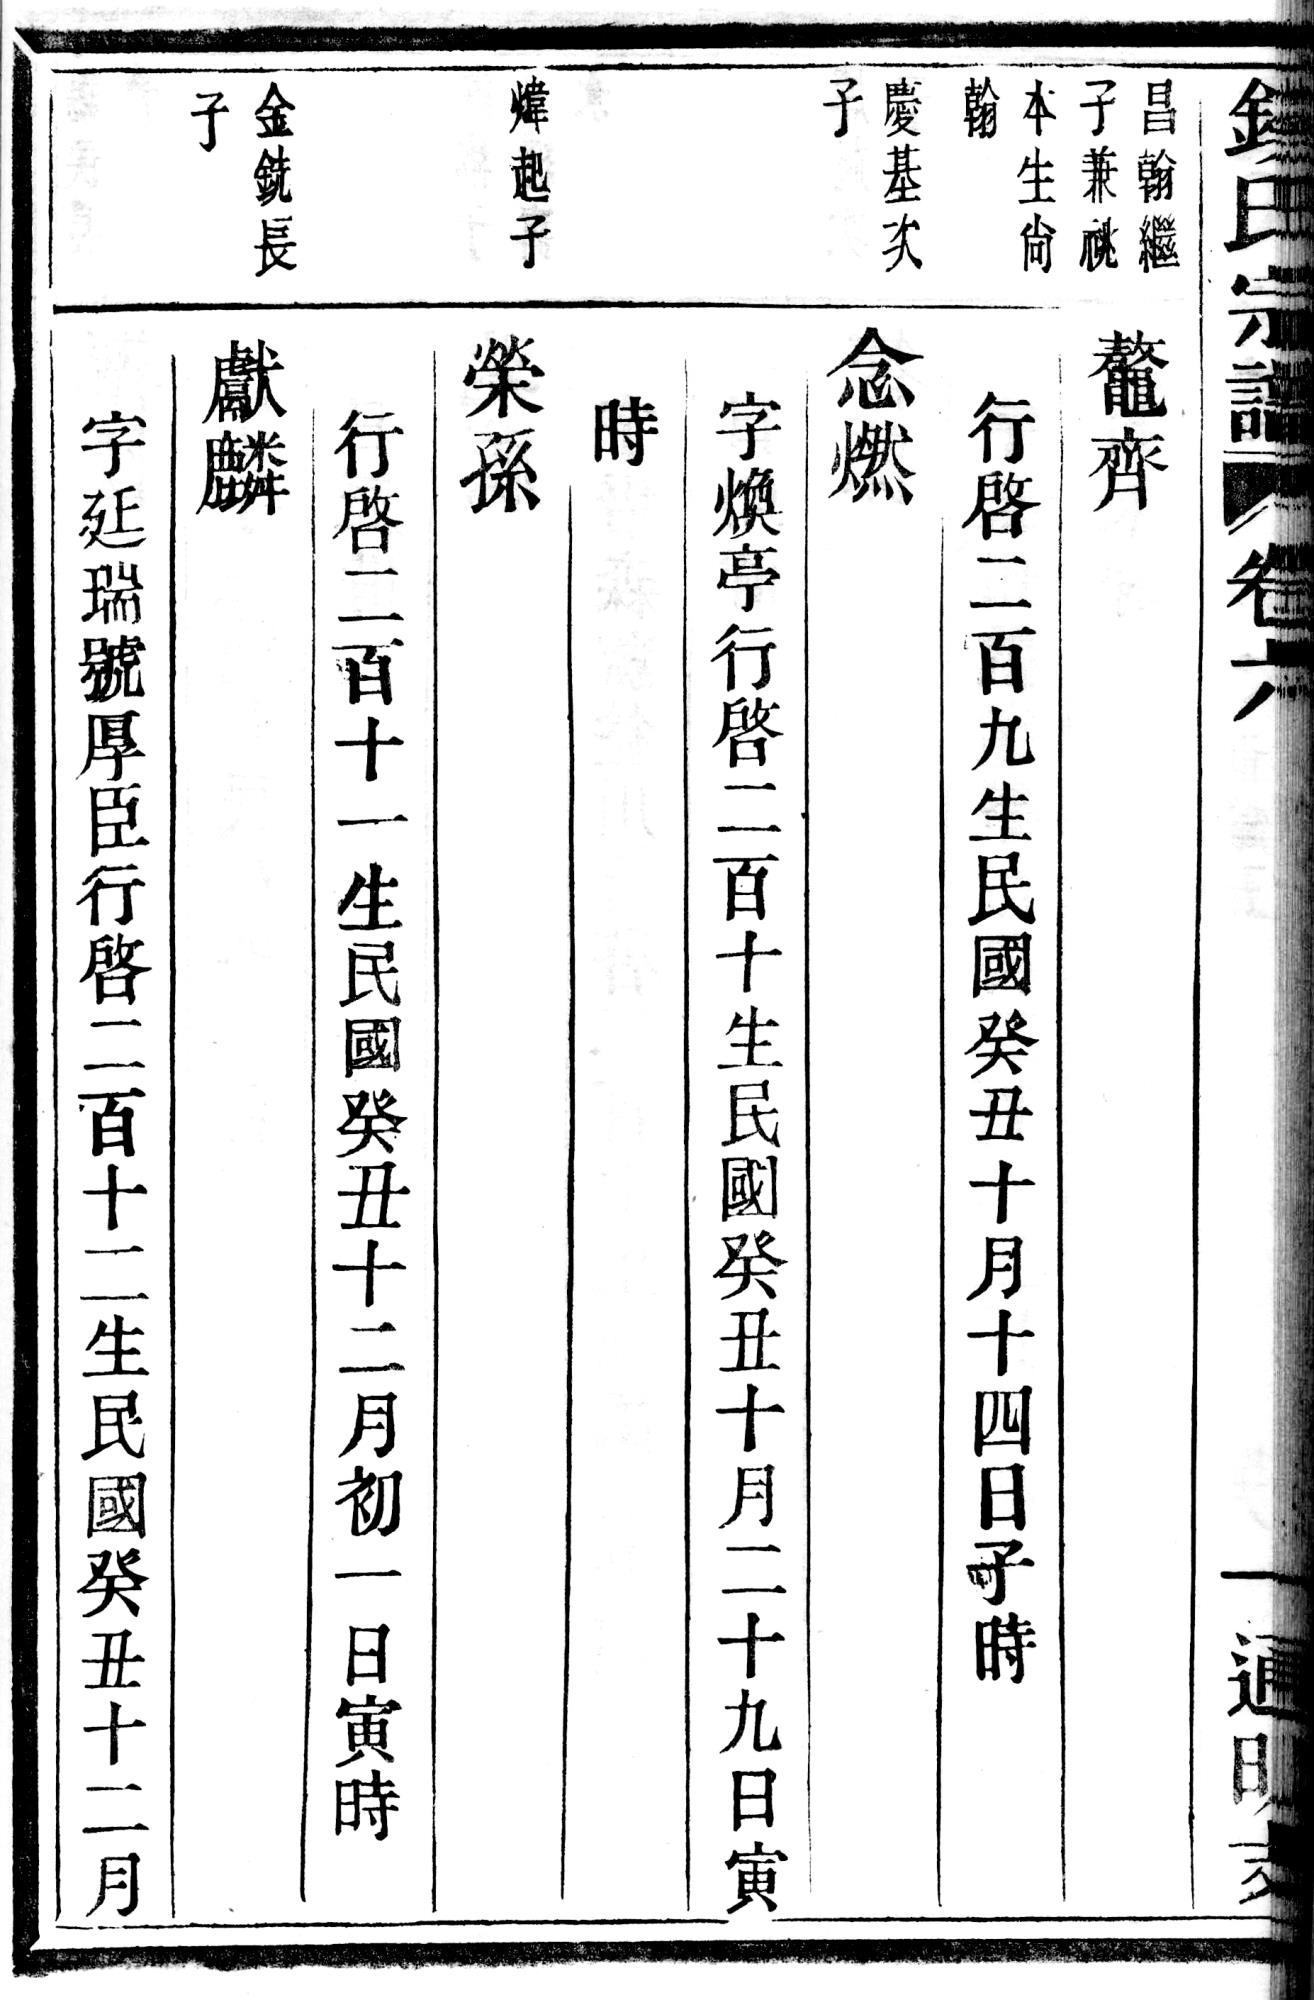 氏宗譜
卷六
一通明支
昌翰繼
子兼祧
本生尙
翰
鼇齊
行啓二百九生民國癸丑十月十四日子時
慶基次
子
念燃
字煥亭行啓二百十生民國癸丑十月二十九日寅
時
煒起子
榮孫
行啓二百十一生民國癸丑十二月初一日寅時
金銑長
子
獻麟
字延瑞號厚臣行啓二百十二生民國癸丑十二月